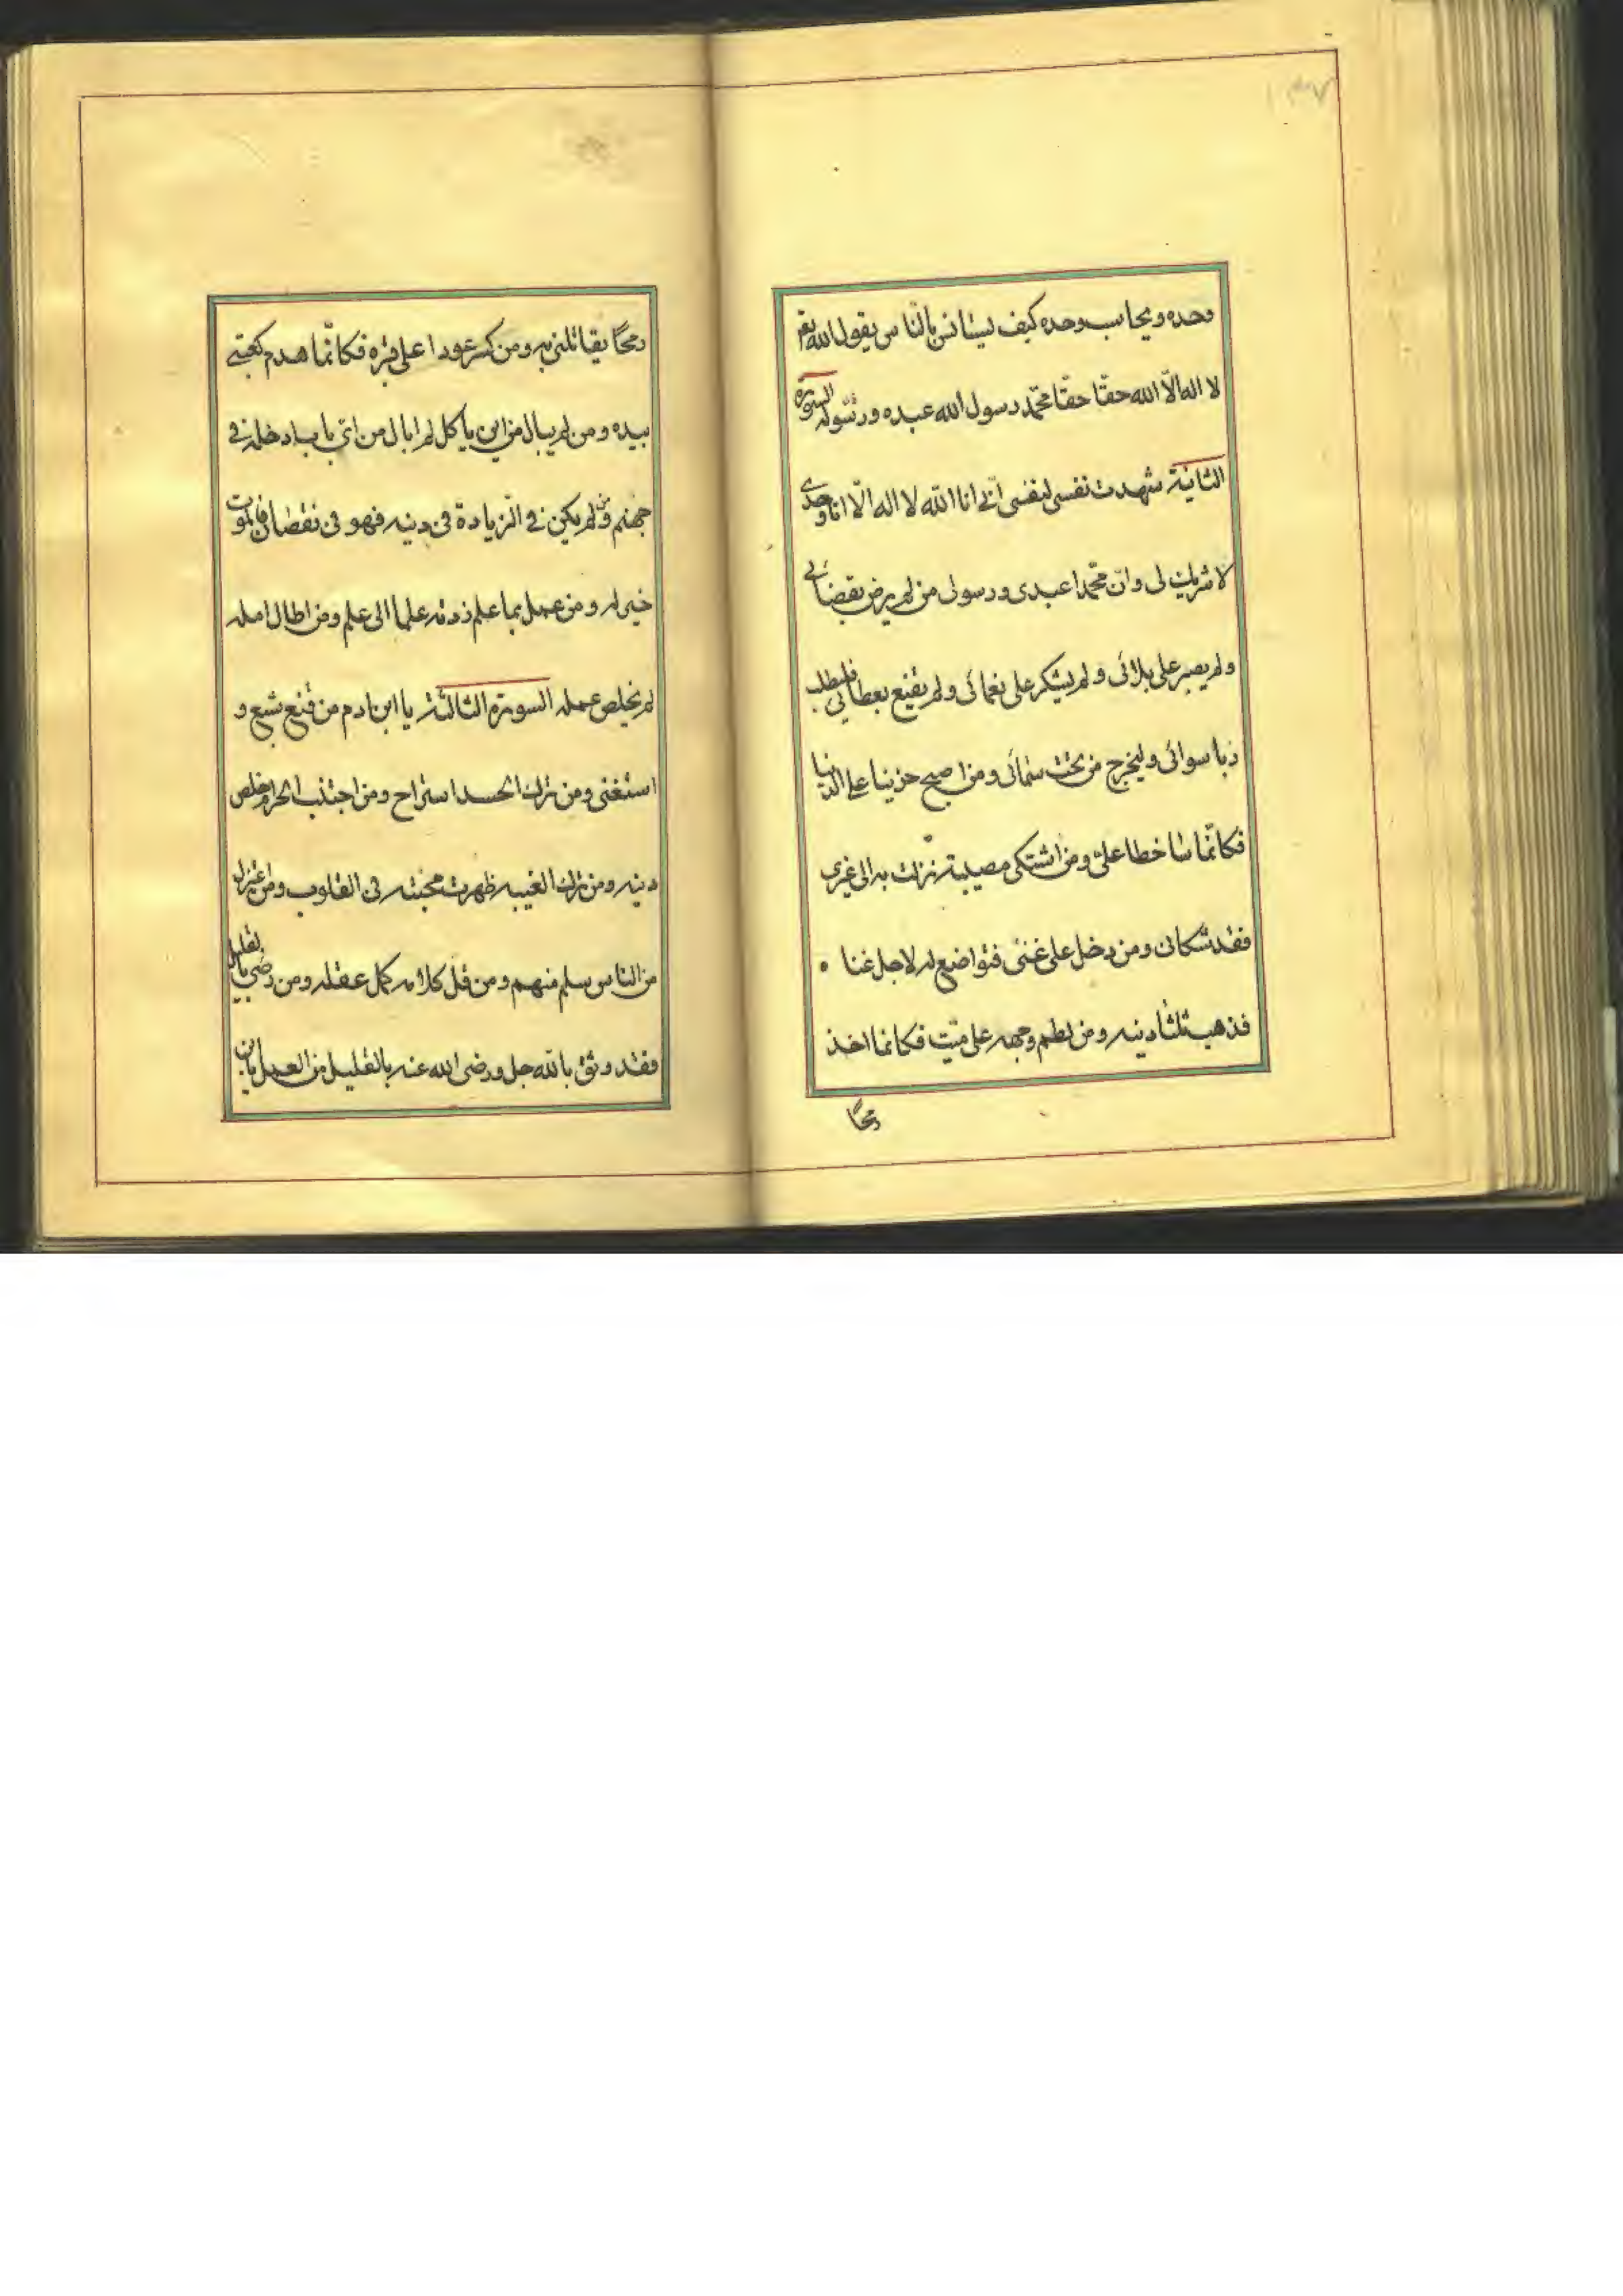 وحده ويحاسب وحده كيف يستانس بالناس يقول الله تعم
لا اله الّا الله حقّا حقّا محمّد رسول الله عبده ورسوله السورة
الثانية شهدت نفسى لنفسى انّى انا الله لا اله الّا انا وحدى
لا شريك لى وانّ محمّدا عبدى ورسولى من لم يرض بقضائى
ولم يصبر على بلائى ولم يشكر على نعمائى ولم يقنع بعطائى فليطلب
ربا سوائى وليخرج من تحت سمائى ومن اصبح حزينا على الدنيا
فكانّما ساخطا علىّ ومن اشتكى مصيبة نزلت به الى غيرى
فقد شكانى ومن دخل على غنى فتواضع له لاجل غنا
فذهب ثلثا دينه ومن لطم وجهه على ميّت فكانما اخذ
رمحًا
رمحًا يقاتلنى به ومن كسر عودا على قبره فكانّما هدم كعبتى
بيده ومن لم يبال من اين ياكل لم ابال من اىّ باب ادخله فى
جهنم ومن لم يكن فى الزيادة فى دينه فهو فى نقصان فالموت
خير له ومن عمل بما علم زدته علما الى علم ومن اطال امله
لم يخلص عمله السورة الثالثة يا ابن ادم من قنع شبع و
استغنى ومن ترك الحسد استراح ومن اجتنب الحرام خلص
دينه ومن ترك الغيبه ظهرت محبته فى القلوب ومن اعتزل
من الناس سلم منهم ومن قلّ كلامه كمل عقله ومن رضى بالقليل
فقد وثق بالله جل ورضى الله عنه بالقليل من العمل يابن